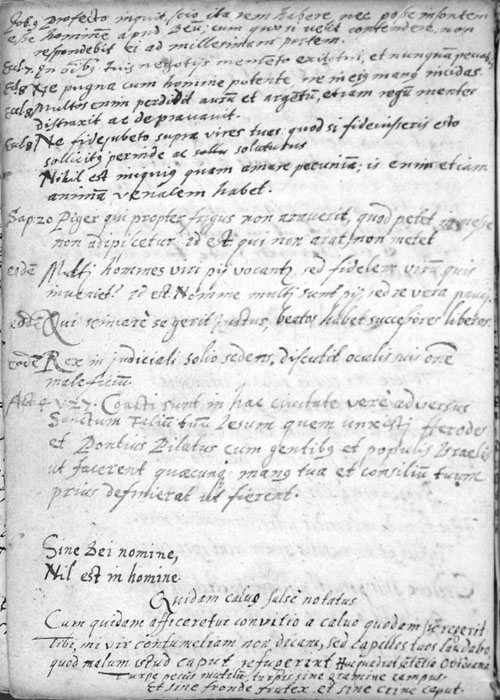 Job. 9 profecto inquit, scio ita rem habere nec posse insontem
esse hominē apud Deū: cum quo si velit contendere, non
respondebit ei ad millesimam partem.
Eccl 7. In oībq tuis negotijs memēto exitotui, et nunquā peccabis
Ecl 8 Ne pugna cum homine potente ne in eiq manq incidas.
Eccl 8. Multos enim perdidit aurū et argētū, etiam regū mentes
distraxit ac depravavit.
Eccl 8 Ne fideiubeto supra vires tuas quod si fideiusseris esto
sollicitq perinde ac soluturus
Nihil est iniquiq quam amare pecuniā; is enim etiam
animā venalem habet.
Sap 20 Piger qui propter frigus non araverit, quod petet in messe
non adipiscetur. id est, qui non arat, non metet
eodē Multj homines viri pij vocantq, sed fidelem virū quis
inveniet? id est Nomine multj sunt pij, sed re vera pauci
eodē Qui sincere se gerit justus, beatos habet successores liberos.
eodē Rex in judiciali solio sedens, discutit oculis suis omē
maleficiū.
Act 4 v. 27. Coacti sunt in hac civitate vere adversus
Sanctum Filiū tuū Jesum quem unxisti Herodes
et Pontius Pilatus cum gentibq et populis Israelis
ut facerent quæcunq manq tua et consiliū tuum
prius definierat ut fierent.
Sine Dei nomine,
Nil est in homine.
Quidam calvq salsè notatus
Cum quidam afficeretur convitio a calvo quodam
Tibi, mi vir contumeliam non dicam, sed capillos tuos laudabo
quod malum istud caput refugerint
Turpe pecus mutilū, turpis sine gramine campus.
Et sine fronde frutex et sine crine caput.